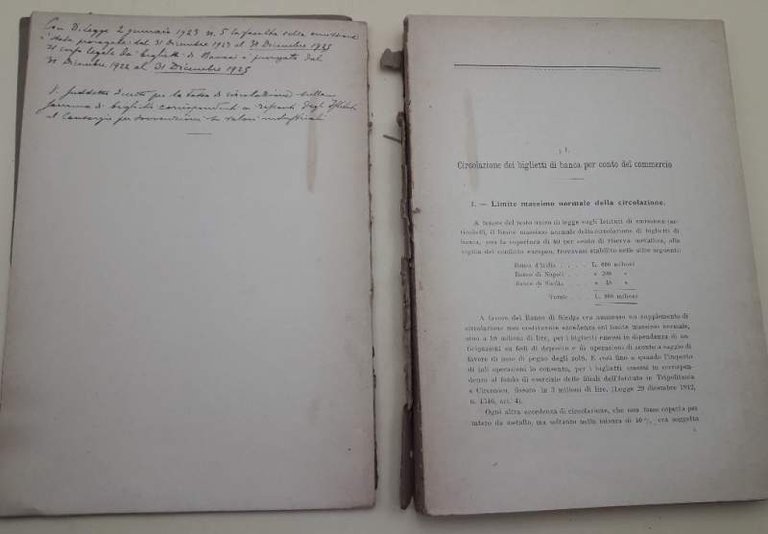 Con D. legge 2 gennaio 1923 n. 5 la facoltà sulla emissione
è stata prorogata dal 31 Dicembre 1923 al 31 Dicembre 1925
Il corso legale dei biglietti di Banca è prorogato dal
31 Dicembre 1922 al 31 Dicembre 1925
per la tassa di circolazione sulla
somma di biglietti corrispondenti a
al Consorzio per sovvenzioni su valori industriali
§ I.
Circolazione dei biglietti di banca per conto del commercio
I. — Limite massimo normale della circolazione.
A tenore del testo unico di legge sugli Istituti di emissione (ar-
il limite massimo normale della circolazione di biglietti di
banca, con la copertura di 40 per cento di riserva metallica, alla
vigilia del conflitto europeo, trovavasi stabilito nelle cifre seguenti:
Banca d'Italia . . . . L. 660 milioni
Banco di Napoli . . . . » 200 »
Banco di Sicilia . . . » 48 »
Totale . . . L. 908 milioni
A favore del Banco di Sicilia era ammesso un supplemento di
circolazione non costituente eccedenza sul limite massimo normale,
sino a milioni di lire, per i biglietti emessi in dipendenza di an-
ticipazioni su fedi di deposito e di operazioni di sconto a saggio di
favore di note di pegno degli zolfi. E così fino a quando l'importo
di tali operazioni lo consenta, per i biglietti emessi in corrispon-
denza al fondo di esercizio delle filiali dell'Istituto in Tripolitania
e Cirenaica, fissato in 3 milioni di lire. (Legge 29 dicembre 1912,
n. 1346, art. 4).
Ogni altra eccedenza di circolazione, che non fosse coperta per
intero da metallo, ma soltanto nella misura di 40 %, era soggetta